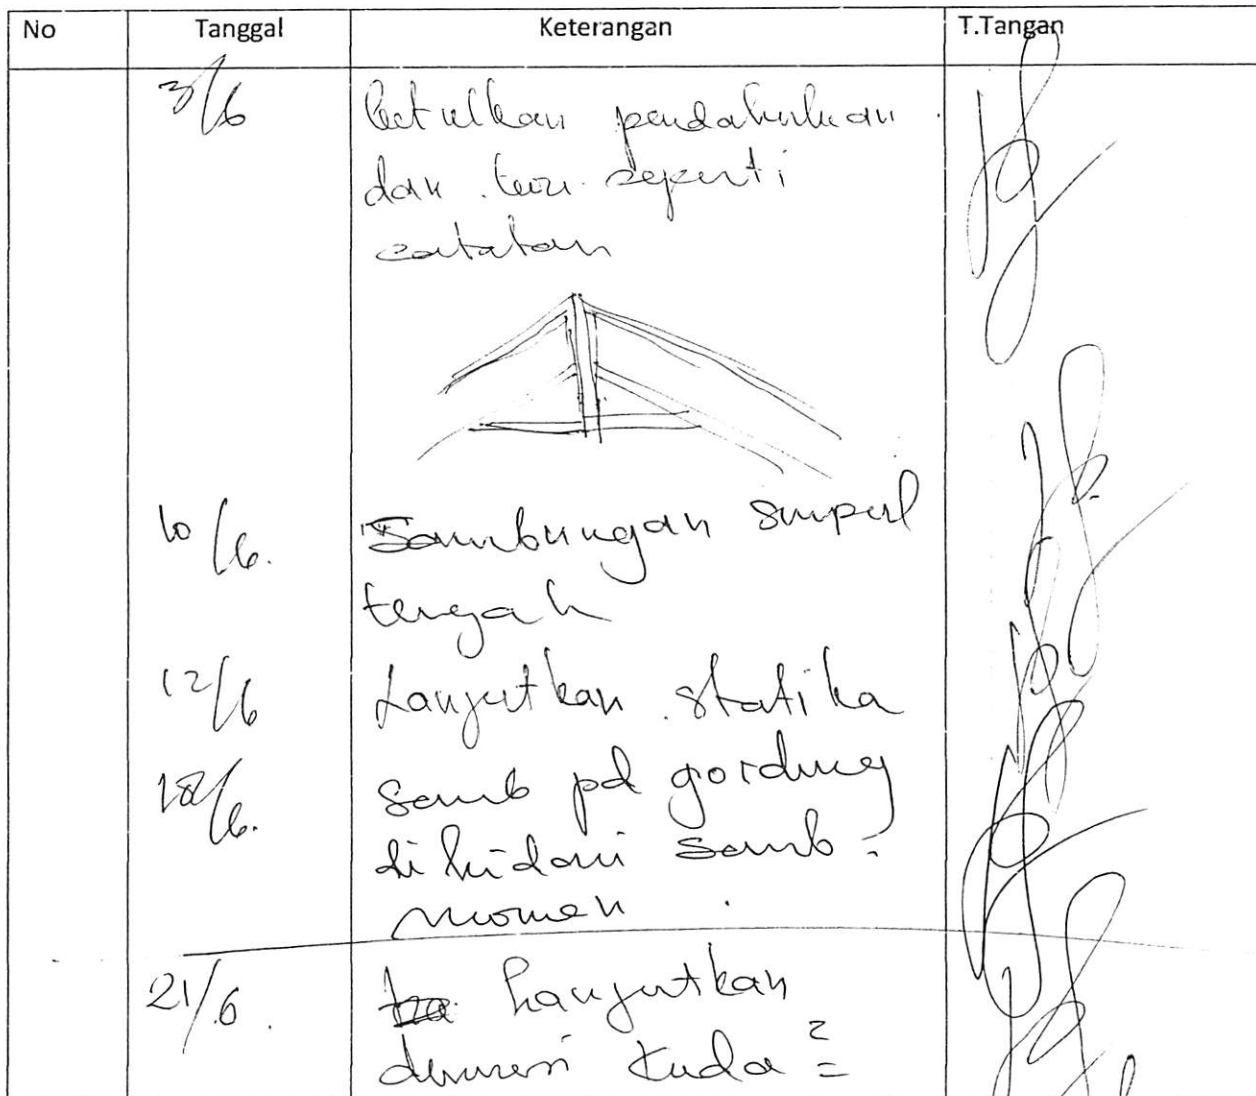 No Tanggal Keterangan T.Tangan
3/6 betulkan pendahuluan
dan teori seperti
catatan
10/6. Sambungan simpul
tengah
12/6 Lanjutkan statika
18/6. Samb pd gording
dihindari samb =
momen
21/6. Lanjutkan
dimensi kuda 2 =